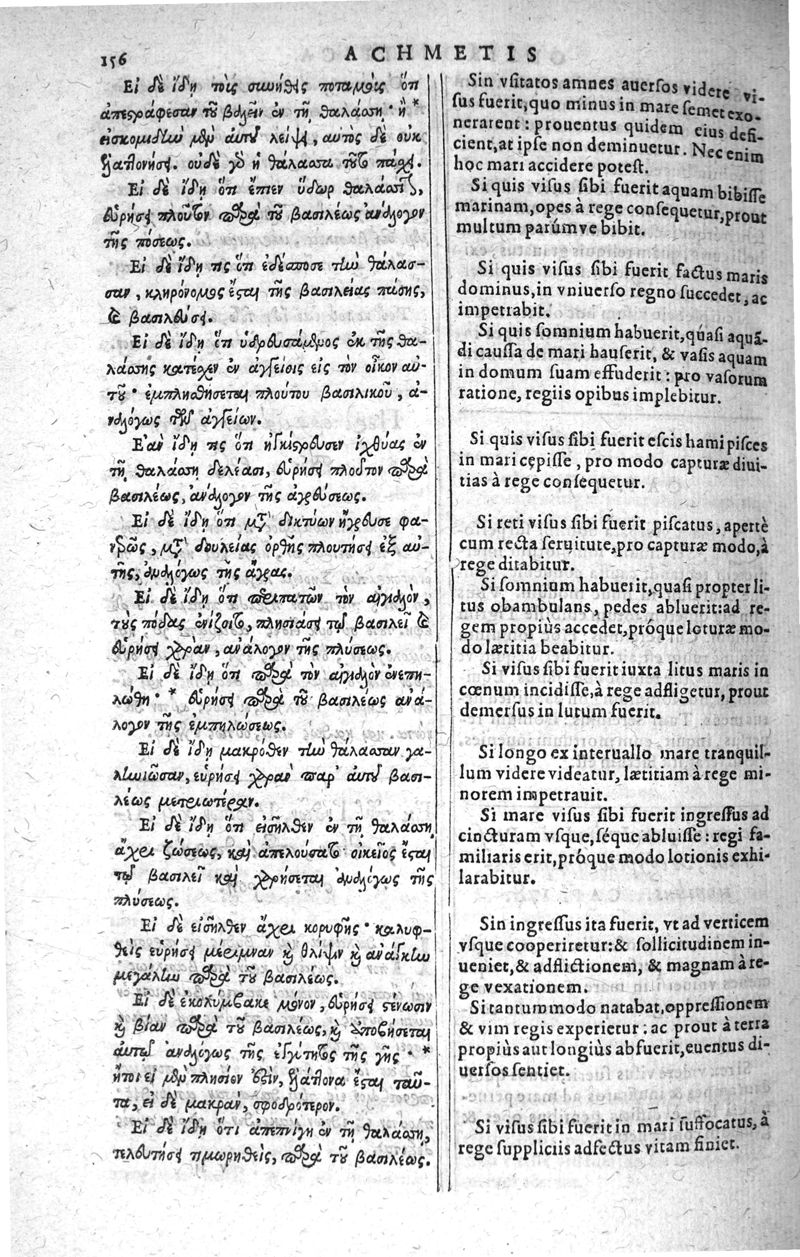 156
ACHMETIS
Εἰ δὲ ἴδῃ τοὺς συνήθεις ποταμοὺς ὅτι
ἀπεστράφησαν τοῦ βαλεῖν ἐν τῇ θαλάσσῃ· ἡ *
εἰσκομιδὴ μὲν αὐτοῦ λείψει, αὐτὸς δὲ οὐκ
οὐδὲ γὸ ἡ θάλασσα τοῦτο πάσχει.
Εἰ δὲ ἴδῃ ὅτι ἔπιεν ὕδωρ θαλάσσης,
εὑρήσει πλοῦτον παρὰ τοῦ βασιλέως ἀνάλογον
τῆς πόσεως.
Εἰ δὲ ἴδῃ τις ὅτι ἐδέσποσε τὴν θάλασ-
σαν, κληρονόμος ἔσται τῆς βασιλείας πάσης,
καὶ βασιλεύσει.
Εἰ δὲ ἴδῃ ὅτι ὑδρευσάμενος ἐκ τῆς θα-
λάσσης κατέχεεν ἐν ἀγγείοις εἰς τὸν οἶκον αὐ-
τοῦ· ἐμπλησθήσεται πλούτου βασιλικοῦ, ἀ-
ναλόγως τῶν ἀγγείων.
Ἐὰν ἴδῃ τις ὅτι ἠγκίστρευσεν ἰχθύας ἐν
τῇ θαλάσσῃ δελέασι, εὑρήσει πλοῦτον παρὰ
βασιλέως, ἀνάλογον τῆς ἀγρεύσεως.
Εἰ δὲ ἴδῃ ὅτι μετὰ δικτύων ἤγρευσε φα-
νερῶς, μετὰ δουλείας ὀρθῆς πλουτήσει ἐξ αὐ-
τῆς, ἀναλόγως τῆς ἄγρας.
Εἰ δὲ ἴδῃ ὅτι περιπατῶν τὸν αἰγιαλὸν,
τοὺς πόδας ἐνίζοιτο, πλησιάσει τῷ βασιλεῖ καὶ
εὑρήσει χαρὰν, ἀνάλογον τῆς πλύσεως.
Εἰ δὲ ἴδῃ ὅτι παρὰ τὸν αἰγιαλὸν ἐνεπη-
λώθη· * εὑρήσει παρὰ τοῦ βασιλέως ἀνά-
λογον τῆς ἐμπηλώσεως.
Εἰ δὲ ἴδῃ μακρόθεν τὴν θάλασσαν γα-
ληνιῶσαν, εὑρήσει χαρὰν παρ' αὐτοῦ βασι-
λέως μετριωτέραν.
Εἰ δὲ ἴδῃ ὅτι εἰσῆλθεν ἐν τῇ θαλάσσῃ
ἄχρι ζώσεως, καὶ ἀπελούσατο· οἰκεῖος ἔσται
τῷ βασιλεῖ καὶ χρήσεται ἀναλόγως τῆς
πλύσεως.
Εἰ δὲ εἰσῆλθεν ἄχρι κορυφῆς· καλυφ-
θεὶς εὑρήσει μέριμναν καὶ θλίψιν καὶ ἀνάγκην
μεγάλην παρὰ τοῦ βασιλέως.
Εἰ δὲ ἐκολύμβακε μόνον, εὑρήσει στένωσιν
καὶ βίαν παρὰ τοῦ βασιλέως, καὶ ἀποβήσεται
αὐτῷ ἀναλόγως τῆς ἐγγύτητος τῆς γῆς· *
ἤτοι εἰ μὲν πλησίον ἐστὶν, ἔσται ταῦ-
τα, εἰ δὲ μακρὰν, σφοδρότερον.
Εἰ δὲ ἴδῃ ὅτι ἀπεπνίγη ἐν τῇ θαλάσσῃ,
τελευτήσει τιμωρηθεὶς, παρὰ τοῦ βασιλέως.
Sin vsitatos amnes auersos videre vi-
sus fuerit, quo minus in mare semet exo-
nerarent: prouentus quidem eius defi-
cient, at ipse non deminuetur. Nec enim
hoc mari accidere potest.
Si quis visus sibi fuerit aquam bibisse
marinam, opes à rege consequetur, prout
multum parúmve bibit.
Si quis visus sibi fuerit factus maris
dominus, in vniuerso regno succedet, ac
impetrabit.
Si quis somnium habuerit, quasi aquã-
di caussa de mari hauserit, & vasis aquam
in domum suam effuderit: pro vasorum
ratione, regiis opibus implebitur.
Si quis visus sibi fuerit escis hami pisces
in mari cepisse, pro modo capturæ diui-
tias à rege consequetur.
Si reti visus sibi fuerit piscatus, apertè
cum recta seruitute, pro capturæ modo, à
rege ditabitur.
Si somnium habuerit, quasi propter li-
tus obambulans, pedes abluerit: ad re-
gem propiùs accedet, próque loturæ mo-
do lætitia beabitur.
Si visus sibi fuerit iuxta litus maris in
cœnum incidisse, à rege adfligetur, prout
demersus in lutum fuerit.
Si longo ex interuallo mare tranquil-
lum videre videatur, lætitiam à rege mi-
norem impetrauit.
Si mare visus sibi fuerit ingressus ad
cincturam vsque, séque abluisse: regi fa-
miliaris erit, próque modo lotionis exhi-
larabitur.
Sin ingressus ita fuerit, vt ad verticem
vsque cooperiretur: & sollicitudinem in-
ueniet, & adflictionem, & magnam à re-
ge vexationem.
Si tantummodo natabat, oppressionem
& vim regis experietur: ac prout à terra
propiùs aut longiùs abfuerit, euentus di-
uersos sentiet.
Si visus sibi fuerit in mari suffocatus, à
rege suppliciis adfectus vitam finiet.